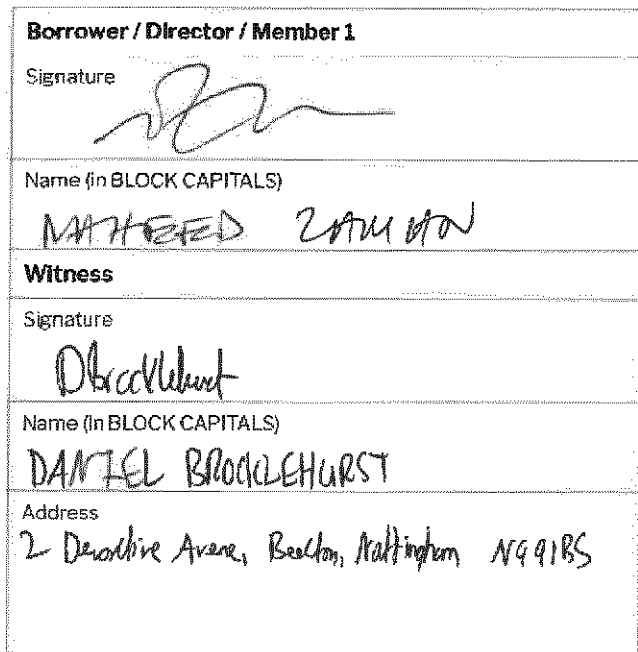 Borrower / Director / Member 1
Signature
Name (in BLOCK CAPITALS)
NAHEED ZAMAN
Witness
Signature
DBrocklehurst
Name (in BLOCK CAPITALS)
DANIEL BROCKLEHURST
Address
2 Devonshire Avenue, Beeston, Nottingham NG9 1BS